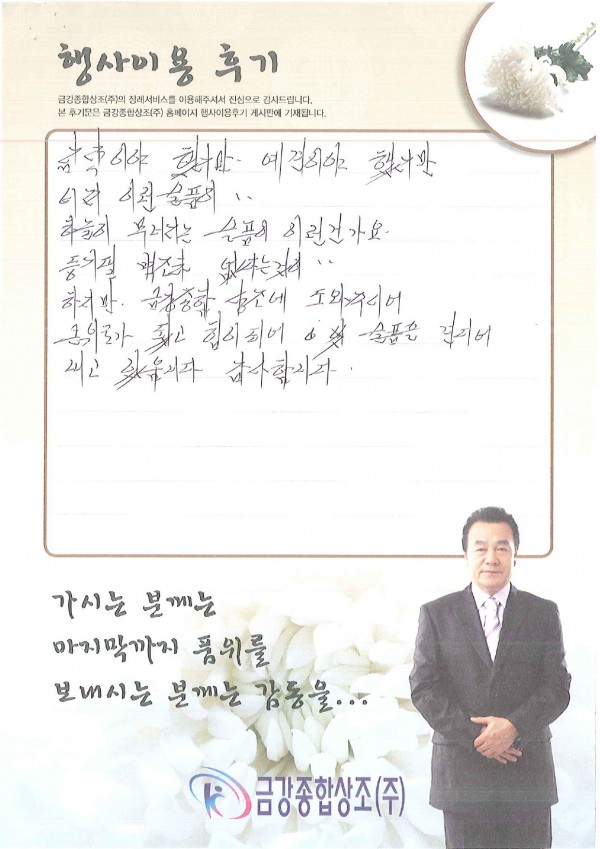 행사이용 후기
금강종합상조(주)의 장례서비스를 이용해주셔서 진심으로 감사드립니다.
본 후기문은 금강종합상조(주) 홈페이지 행사이용후기 게시판에 기재됩니다.
했지만 했지만
이런 슬픔이 ..
하늘이 무너지는 슬픔이 이런건가요.
하지만. 금강종합 상조에 도와주시어
큰 위로가 되고 힘이 되어 이 슬픔을
있습니다 감사합니다.
가시는 분께는
마지막까지 품위를
보내시는 분께는 감동을...
금강종합상조(주)